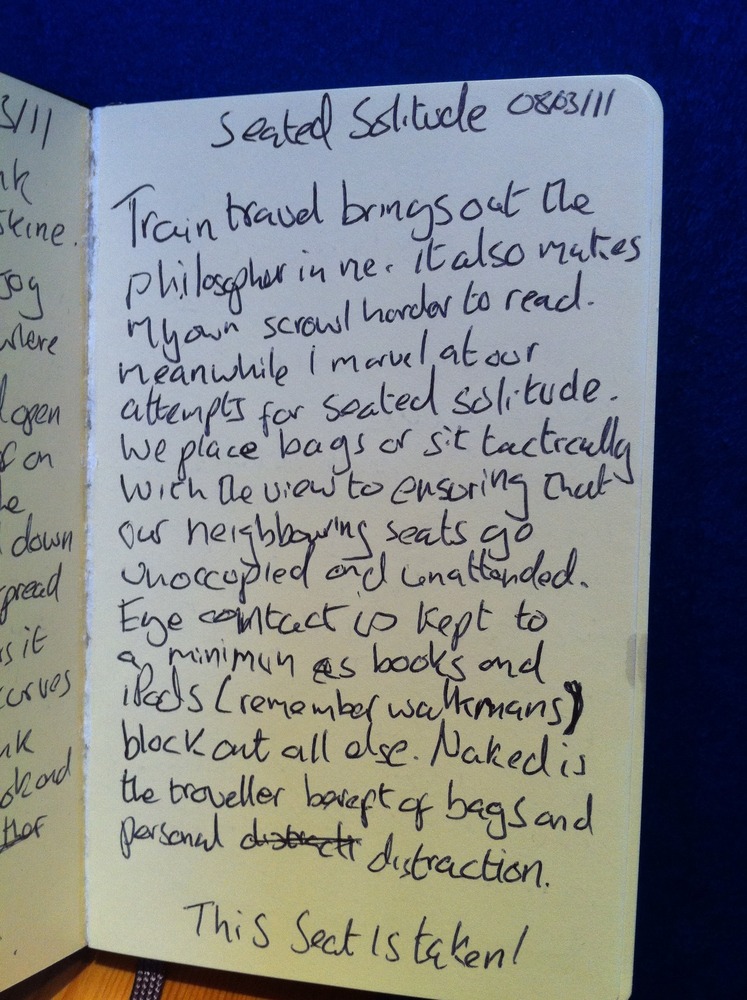 3/11
nk
skine.
joy
where
open
f on
he
down
pread
s it
curves
nk
ok and
Seated Solitude 08/03/11
Train travel brings out the
philosopher in me. it also makes
my own scrawl harder to read.
meanwhile I marvel at our
attempts for seated solitude.
We place bags or sit tactically
With the view to ensuring that
our neighbouring seats go
unoccupied and unattended.
Eye contact is kept to
a minimum as books and
iPods (remember walkmans)
block out all else. Naked is
the traveller bereft of bags and
personal distraction.
This Seat Is taken!